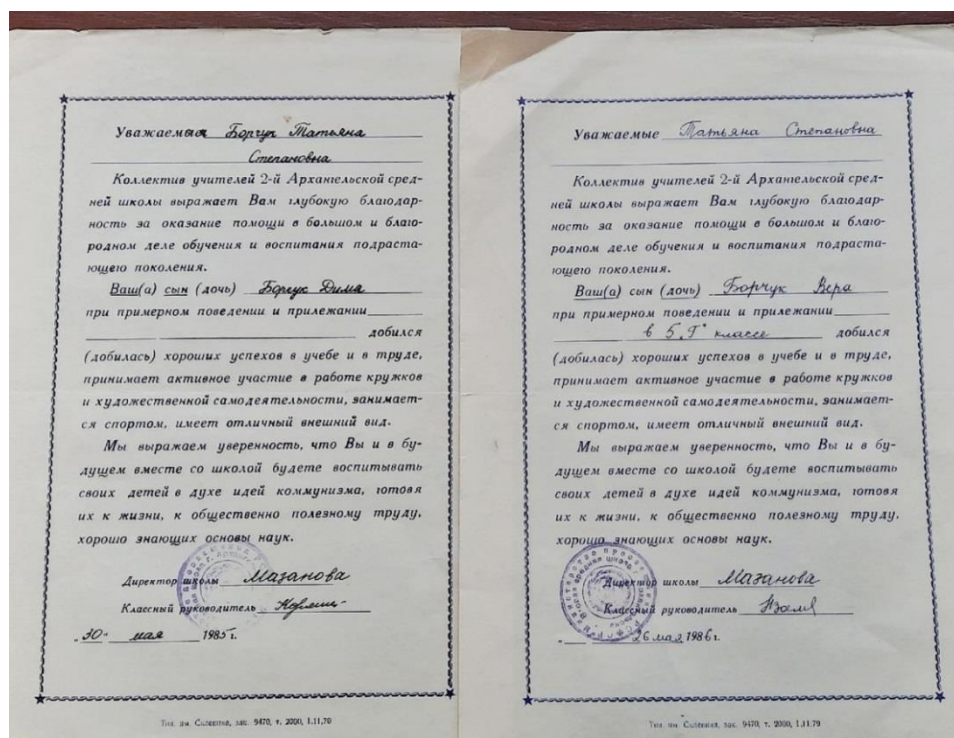 Уважаемая Борчук Татьяна
Степановна
Коллектив учителей 2-й Архангельской сред-
ней школы выражает Вам глубокую благодар-
ность за оказание помощи в большом и благо-
родном деле обучения и воспитания подраста-
ющего поколения.
Ваш(а) сын (дочь) Борчук Дима
при примерном поведении и прилежании
добился
(добилась) хороших успехов в учебе и в труде,
принимает активное участие в работе кружков
и художественной самодеятельности, занимает-
ся спортом, имеет отличный внешний вид.
Мы выражаем уверенность, что Вы и в бу-
дущем вместе со школой будете воспитывать
своих детей в духе идей коммунизма, готовя
их к жизни, к общественно полезному труду,
хорошо знающих основы наук.
Директор школы Мазанова
Классный руководитель
"30" мая 1985 г.
зак. 9470, т. 2000, 1.11.79
Уважаемые Татьяна Степановна
Коллектив учителей 2-й Архангельской сред-
ней школы выражает Вам глубокую благодар-
ность за оказание помощи в большом и благо-
родном деле обучения и воспитания подраста-
ющего поколения.
Ваш(а) сын (дочь) Борчук Вера
при примерном поведении и прилежании
в 5 "Г" классе добился
(добилась) хороших успехов в учебе и в труде,
принимает активное участие в работе кружков
и художественной самодеятельности, занимает-
ся спортом, имеет отличный внешний вид.
Мы выражаем уверенность, что Вы и в бу-
дущем вместе со школой будете воспитывать
своих детей в духе идей коммунизма, готовя
их к жизни, к общественно полезному труду,
хорошо знающих основы наук.
Директор школы Мазанова
Классный руководитель
26 мая 1986 г.
зак. 9470, т. 2000, 1.11.79